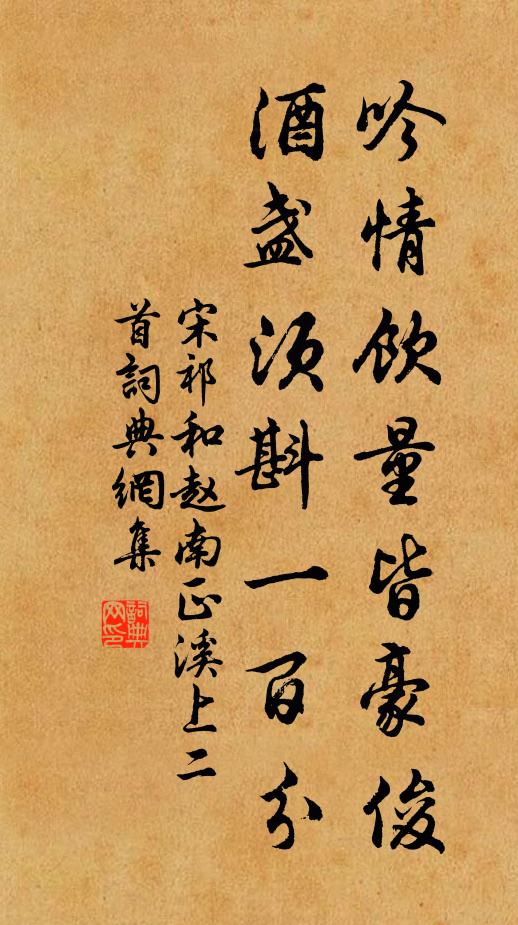 吟情飲量皆豪俊
酒盞須斟一百分
宋祁和赵南正溪上二
首詞典網集
詞典
网印